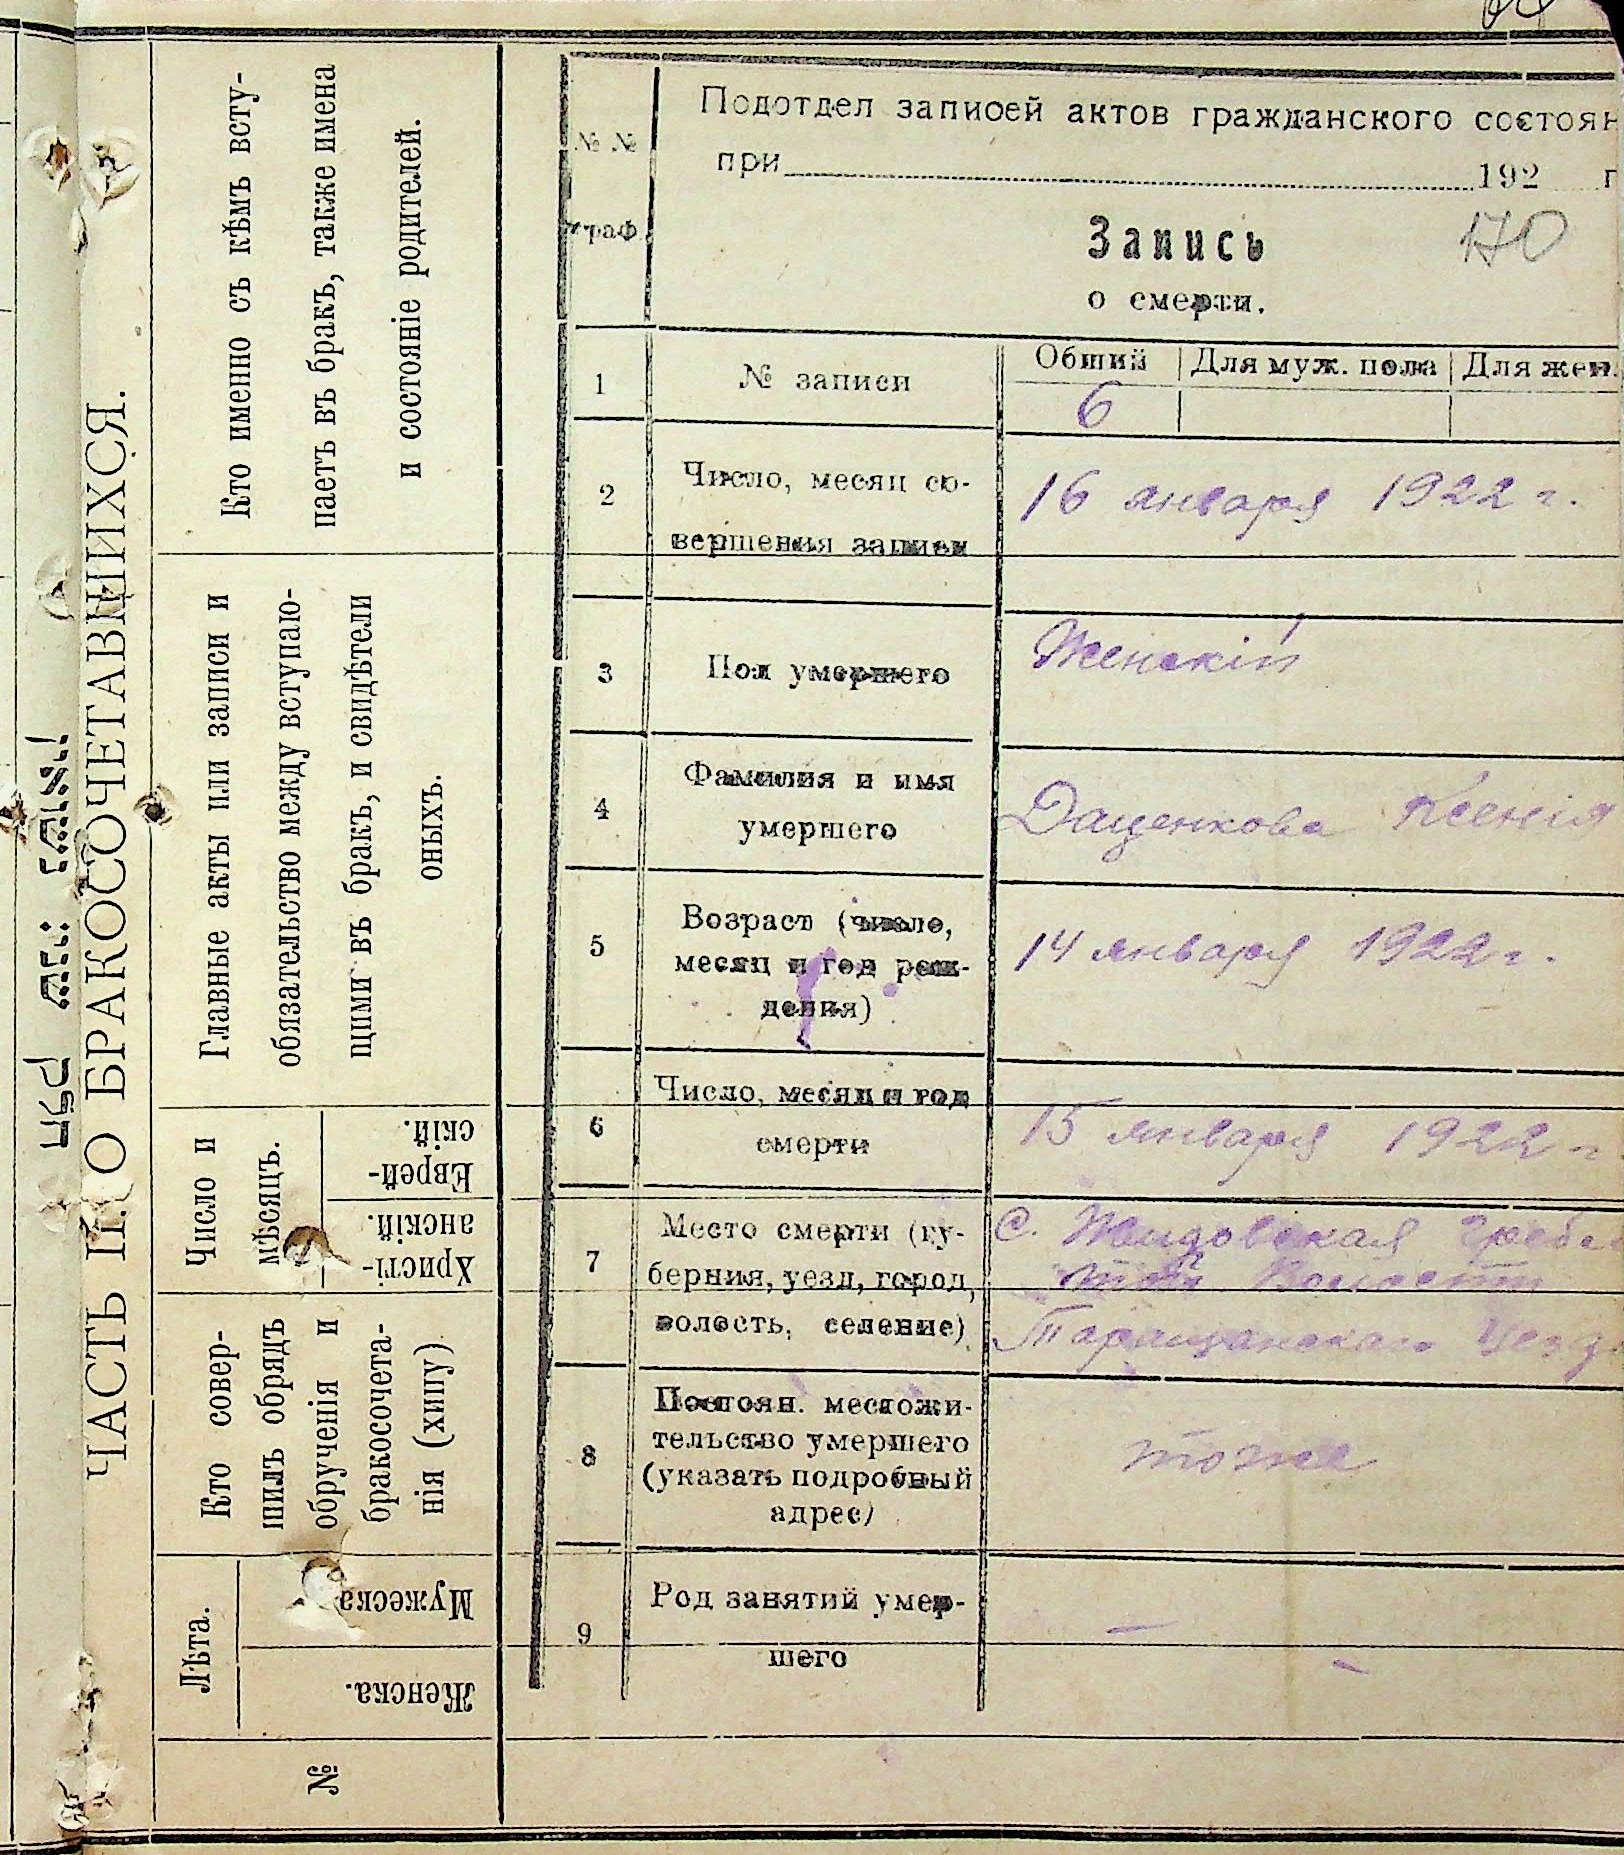 חלק שני: נשואין
ЧАСТЬ II. О БРАКОСОЧЕТАВШИХСЯ.
Кто именно съ кѣмъ всту-
паетъ въ бракъ, также имена
и состояніе родителей.
Главные акты или записи и
обязательство между вступаю-
щими въ бракъ, и свидѣтели
оныхъ.
Число и
мѣсяцъ.
Еврей-
скій.
Христі-
анскій.
Кто совер-
шилъ обрядъ
обрученія и
бракосочета-
нія (хипу)
Лѣта.
Мужеска
Женска.
№
№ №
граф
Подотдел записей актов гражданского состоян
при 192 г
Запись
о смерти.
170
1
№ записи
Общий
Для муж. пола
Для жен.
6
2
Число, месяц со-
вершения записи
16 января 1922 г.
3
Пол умершего
Женскій
4
Фамилия и имя
умершего
Даценкова Ксенія
5
Возраст (число,
месяц и год рож-
дения)
14 января 1922 г.
6
Число, месяц и год
смерти
15 января 1922 г
7
Место смерти (гу-
берния, уезд, город,
волость, селение)
С. Жидовская Гребел
той Волости
Таращанскаго Уезда
8
Постоян. местожи-
тельство умершего
(указать подробный
адрес)
тоже
9
Род занятий умер-
шего
—